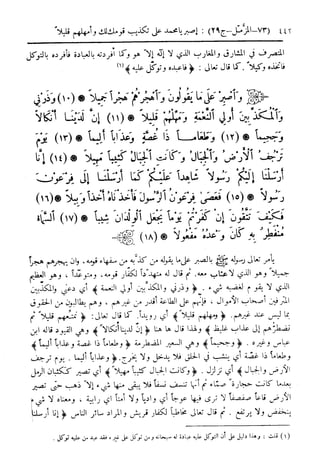 ٤٤٢ (٧٣-المزّمّل-ج٢٩) : إصبر يا محمد على تكذيب قومك لك وأمهلهم قليلاً
المتصرف في المشارق والمغارب الذي لا إله إلا هو وكما أفردته بالعبادة فأفرده بالتوكل
فاتخذه وكيلاً . كما قال تعالى : ﴿ فاعبده وتوكل عليه ﴾ (١)
﴿ وَٱصْبِرْ عَلَىٰ مَا يَقُولُونَ وَٱهْجُرْهُمْ هَجْرًا جَمِيلًا ﴾ (١٠) ﴿ وَذَرْنِى
وَٱلْمُكَذِّبِينَ أُولِى ٱلنَّعْمَةِ وَمَهِّلْهُمْ قَلِيلًا ﴾ (١١) ﴿ إِنَّ لَدَيْنَآ أَنكَالًا
وَجَحِيمًا ﴾ (١٢) ﴿ وَطَعَامًا ذَا غُصَّةٍ وَعَذَابًا أَلِيمًا ﴾ (١٣) ﴿ يَوْمَ
تَرْجُفُ ٱلْأَرْضُ وَٱلْجِبَالُ وَكَانَتِ ٱلْجِبَالُ كَثِيبًا مَّهِيلًا ﴾ (١٤) ﴿ إِنَّآ
أَرْسَلْنَآ إِلَيْكُمْ رَسُولًا شَٰهِدًا عَلَيْكُمْ كَمَآ أَرْسَلْنَآ إِلَىٰ فِرْعَوْنَ
رَسُولًا ﴾ (١٥) ﴿ فَعَصَىٰ فِرْعَوْنُ ٱلرَّسُولَ فَأَخَذْنَٰهُ أَخْذًا وَبِيلًا ﴾ (١٦)
﴿ فَكَيْفَ تَتَّقُونَ إِن كَفَرْتُمْ يَوْمًا يَجْعَلُ ٱلْوِلْدَٰنَ شِيبًا ﴾ (١٧) ﴿ ٱلسَّمَآءُ
مُنفَطِرٌۢ بِهِۦ كَانَ وَعْدُهُۥ مَفْعُولًا ﴾ (١٨)
يأمر تعالى رسوله ﷺ بالصبر على ما يقوله من كذبه من سفهاء قومه . وان يهجرهم هجراً
جميلاً وهو الذي لا عتاب معه . ثم قال له متهدداً لكفار قومه . ومتوعداً ، وهو العظيم
الذي لا يقوم لغضبه شيء . ﴿ وذرني والمكذبين أولي النعمة ﴾ أي دعني والمكذبين
المترفين أصحاب الأموال ، فإنهم على الطاعة أقدر من غيرهم ، وهم يطالبون من الحقوق
بما ليس عند غيرهم . ﴿ ومهلهم قليلاً ﴾ أي رويداً . كما قال تعالى : ﴿ نمتعهم قليلاً ثم
نضطرهم إلى عذاب غليظ ﴾ ولهذا قال ها هنا ﴿ إن لدينا أنكالاً ﴾ وهي القيود قاله ابن
عباس وغيره . ﴿ وجحيماً ﴾ وهي السعير المضطرمة ﴿ وطعاماً ذا غصة وعذاباً أليماً ﴾
وطعاماً ذا غصة أي ينشب في الحلق فلا يدخل ولا يخرج . ﴿ وعذاباً أليماً . يوم ترجف
الأرض والجبال ﴾ أي تزلزل . ﴿ وكانت الجبال كثيباً مهيلاً ﴾ أي تصير ككثبان الرمل
بعدما كانت حجارة صماء ثم أنها تنسف نسفاً فلا يبقى منها شيء إلا ذهب حتى تصير
الأرض قاعاً صفصفاً لا ترى فيها عوجاً أي وادياً ولا أمتاً أي رابية ، ومعناه لا شيء
ينخفض ولا يرتفع . ثم قال تعالى مخاطباً لكفار قريش والمراد سائر الناس ﴿ إنا أرسلنا
(١) قلت : وهذا دليل على أن التوكل عليه عبادة له سبحانه ومن توكل على غيره فقد عبد من عليه توكل .